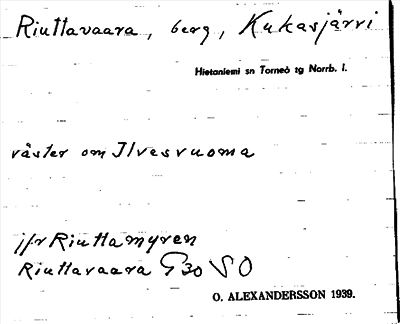 Riuttavaara, berg, Kukasjärvi
Hietaniemi sn Torneå tg Norrb. l.
väster om Ilvesvuoma
jfr Riuttamyren
Riuttavaara G30 SO
O. ALEXANDERSSON 1939.